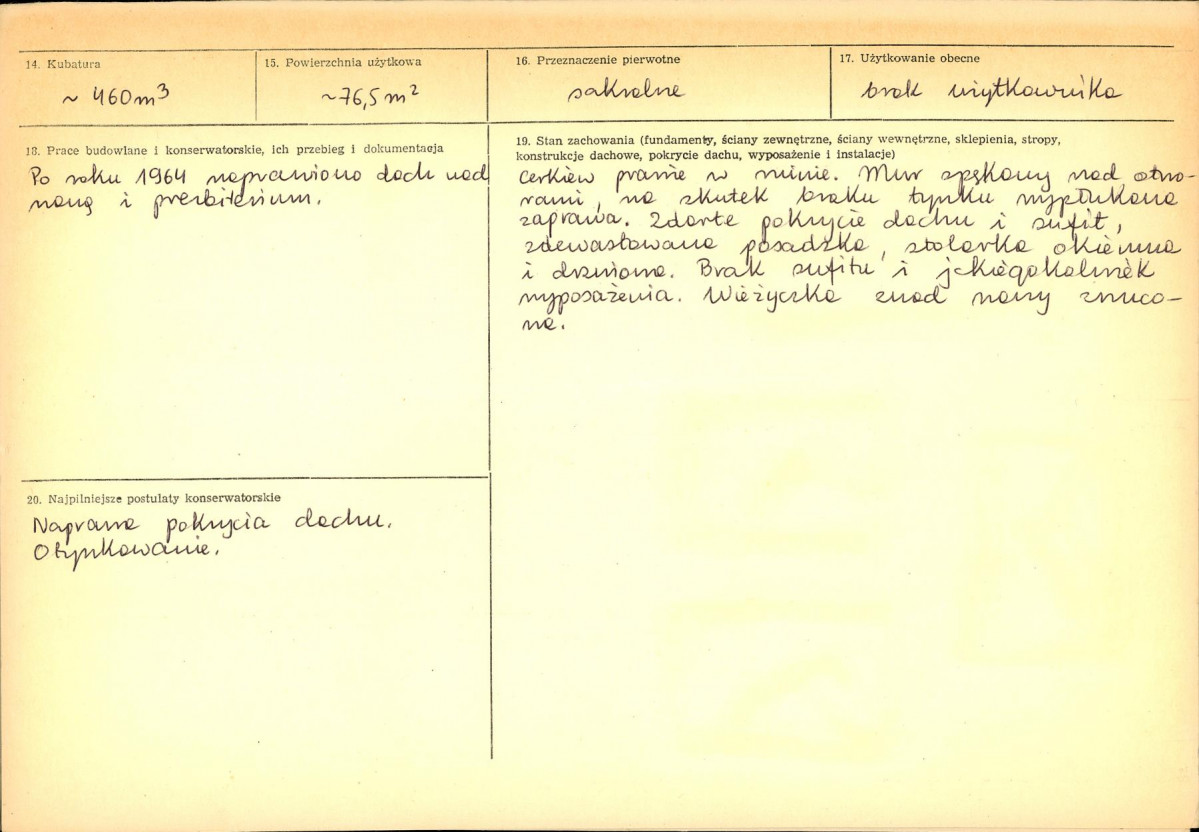 14. Kubatura
~ 460 m³
15. Powierzchnia użytkowa
~76,5 m²
16. Przeznaczenie pierwotne
sakralne
17. Użytkowanie obecne
brak użytkownika
18. Prace budowlane i konserwatorskie, ich przebieg i dokumentacja
Po roku 1964 naprawiono dach nad
nawą i prezbiterium.
19. Stan zachowania (fundamenty, ściany zewnętrzne, ściany wewnętrzne, sklepienia, stropy,
konstrukcje dachowe, pokrycie dachu, wyposażenie i instalacje)
Cerkiew prawie w ruinie. Mur spękany nad otwo-
rami, na skutek braku tynku wypłukana
zaprawa. Zdarte pokrycie dachu i sufit,
zdewastowana posadzka, stolarka okienna
i drzwiowa. Brak sufitu i jakiegokolwiek
wyposażenia. Wieżyczka znad nawy zrzuco-
na.
20. Najpilniejsze postulaty konserwatorskie
Naprawa pokrycia dachu.
Otynkowanie.